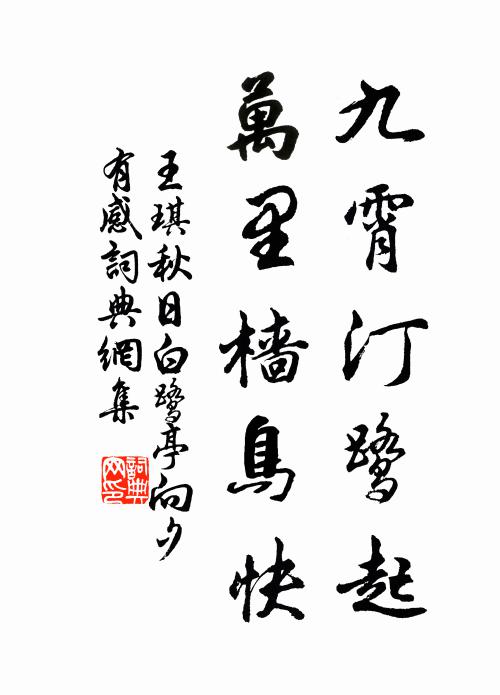 九霄汀鷺起
萬里檣烏快
王琪秋日白鷺亭向夕
有感詞典網集
詞典
网印